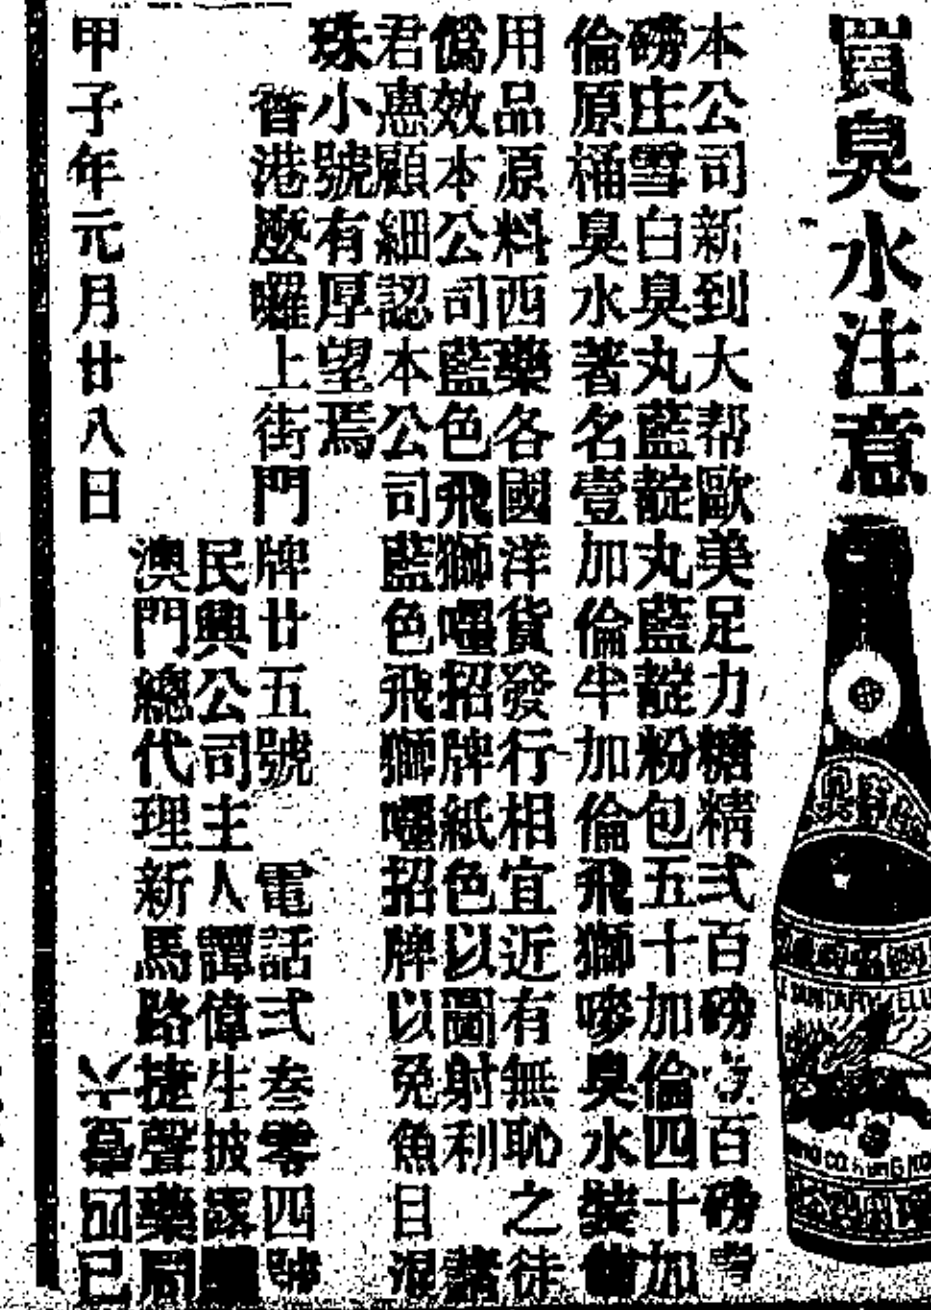 買臭水注意
本公司新到大帮歐美足力糖精弍百磅壹百磅壹
磅庄雪白臭丸藍靛丸藍靛粉包五十加倫四十加
倫原桶臭水著名壹加倫半加倫飛獅嘜臭水裝
用品原料西藥各國洋貨發行相宜近有無恥之徒
僞效本公司藍色飛獅嘜招牌紙色以圖射利 諸
君惠顧細認本公司藍色飛獅嘜招牌以免魚目混
珠小號有厚望焉
香港嚤囉上街門牌廿五號 電話弍叁零四號
民興公司主人譚偉生披露
澳門總代理新馬路捷聲藥局
甲子年元月廿八日
SANITARY FLU
CO. HONG KO